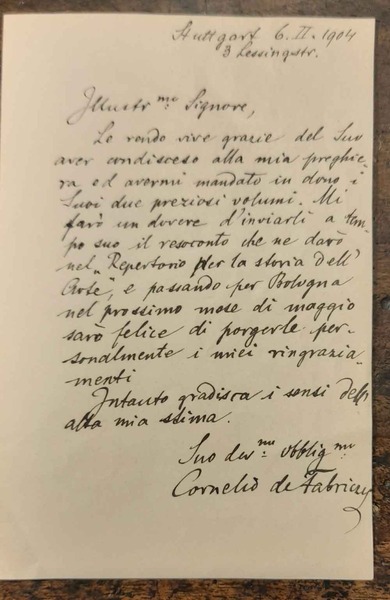 Stuttgart 6. II. 1904
3 Lessingstr.
Illustr.mo Signore,
Le rendo vive grazie del Suo
aver condisceso alla mia preghie-
ra ed avermi mandato in dono i
Suoi due preziosi volumi. Mi
farò un dovere d'inviarli a tem-
po suo il resoconto che ne darò
nel „Repertorio per la storia dell'
Arte", e passando per Bologna
nel prossimo mese di maggio
sarò felice di porgerle per-
sonalmente i miei ringrazia-
menti
Intanto gradisca i sensi della
alta mia stima.
Suo dev.mo obblig.mo
Cornelio de Fabriczy